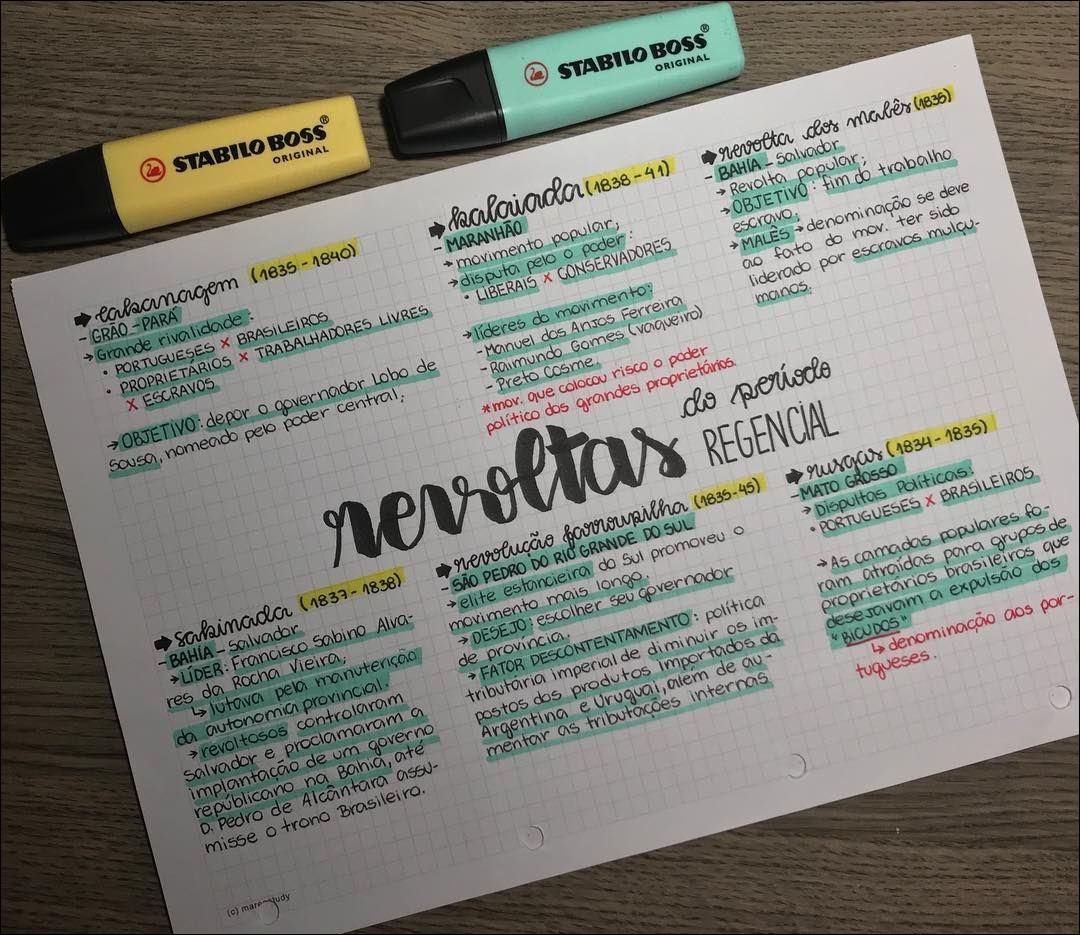 STABILO BOSS®
ORIGINAL
STABILO BOSS®
ORIGINAL
cabanagem (1835-1840)
- GRÃO-PARÁ
→ Grande rivalidade:
• PORTUGUESES X BRASILEIROS
• PROPRIETÁRIOS X TRABALHADORES LIVRES
X ESCRAVOS
→ OBJETIVO: depor o governador Lobo de
Sousa, nomeado pelo poder central;
balaiada (1838-41)
MARANHÃO
→ movimento popular;
→ disputa pelo o poder:
• LIBERAIS X CONSERVADORES
→ líderes do movimento:
- Manuel dos Anjos Ferreira
- Raimundo Gomes (vaqueiro)
- Preto Cosme.
* mov. que colocou risco o poder
político dos grandes proprietários.
revolta dos malês (1835)
- BAHIA - Salvador
→ Revolta popular;
→ OBJETIVO: fim do trabalho
escravo.
→ MALÊS → denominação se deve
ao fato do mov. ter sido
liderado por escravos mulçu-
manos.
revoltas do período
REGENCIAL
sabinada (1837-1838)
- BAHIA - Salvador
→ LÍDER: Francisco Sabino Alva-
res da Rocha Vieira;
↳ lutava pela manutenção
da autonomia provincial.
→ revoltosos controlaram
Salvador e proclamaram a
implantação de um governo
repúblicano na Bahia, até
D. Pedro de Alcântara assu-
misse o trono Brasileiro.
revolução farroupilha (1835-45)
- SÃO PEDRO DO RIO GRANDE DO SUL
→ elite estancieira do Sul promoveu o
movimento mais longo.
→ DESEJO: escolher seu governador
de província.
→ FATOR DESCONTENTAMENTO: política
tributária imperial de diminuir os im-
postos dos produtos importados da
Argentina e Uruguai, além de au-
mentar as tributações internas.
rusgas (1834-1835)
- MATO GROSSO
→ Disputas Políticas:
• PORTUGUESES X BRASILEIROS
→ As camadas populares fo-
ram atraídas para grupos de
proprietários brasileiros que
desejavam a expulsão dos
"BICUDOS"
↳ denominação aos por-
tugueses.
(c)